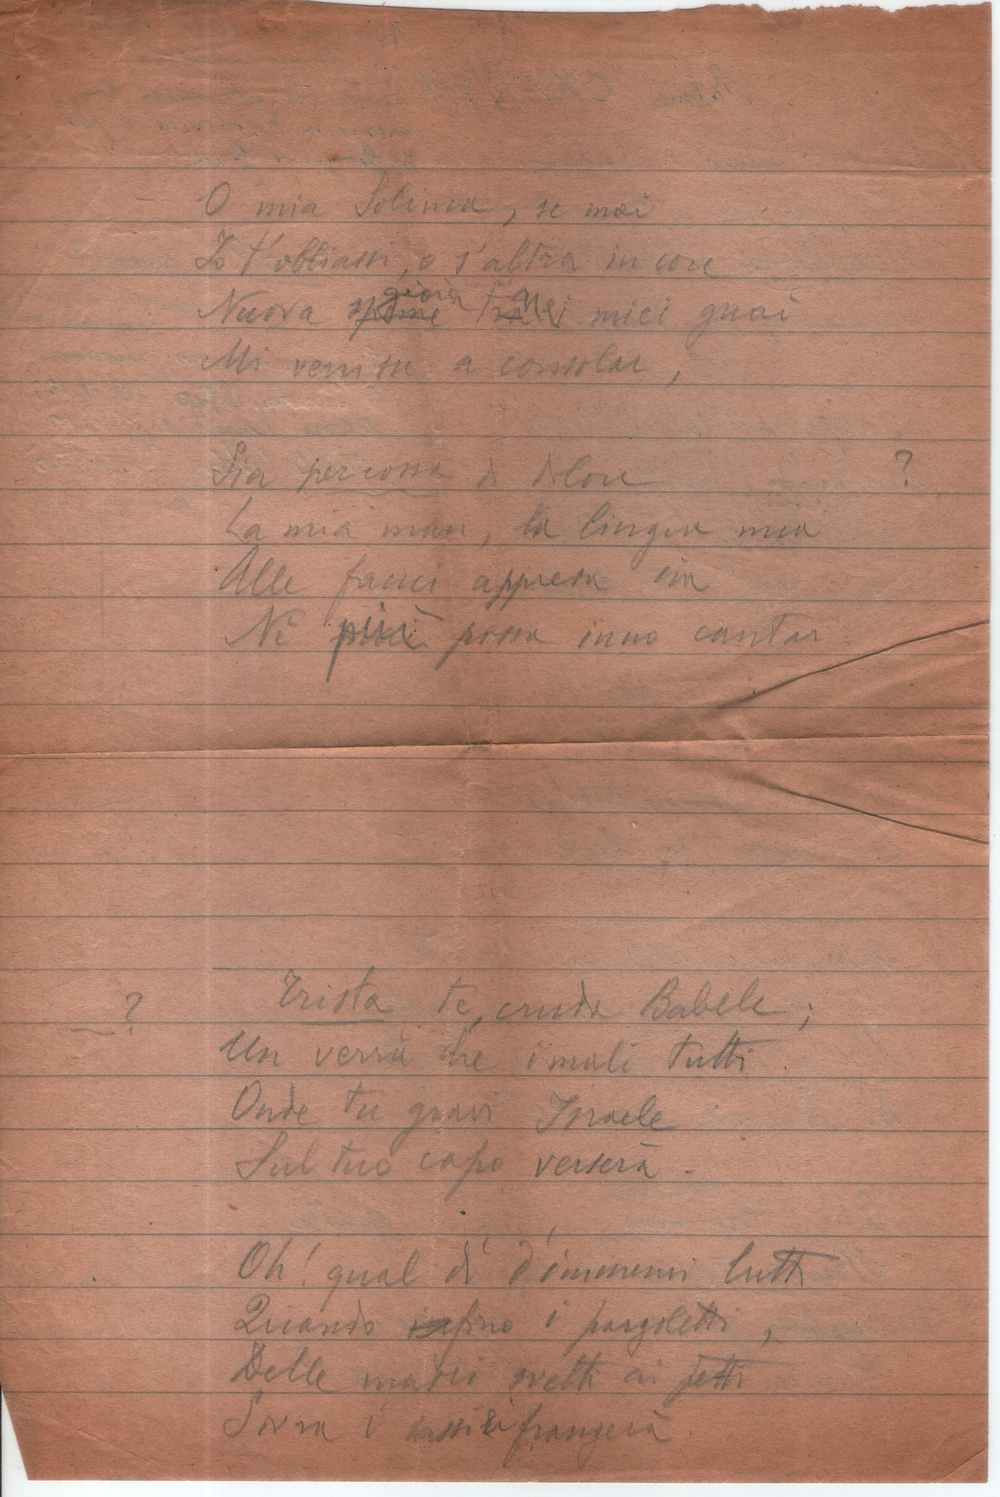 O mia Solima, se mai
Io t'obliassi, o s'altra in core
Nuova speme gioia tra nei miei guai
Mi venisse a consolar,
Sia percossa di dolore ?
La mia man, la lingua mia
Alle fauci appresa sia
Nè più possa inno cantar.
? Trista te, cruda Babele;
Un verrà che i mali tutti
Onde tu gravi Israele
Sul tuo capo verserà.
Oh! qual dì d'immensi lutti
Quando infino i pargoletti,
Delle madri svelti ai petti
Sovra i sassi ei frangerà.